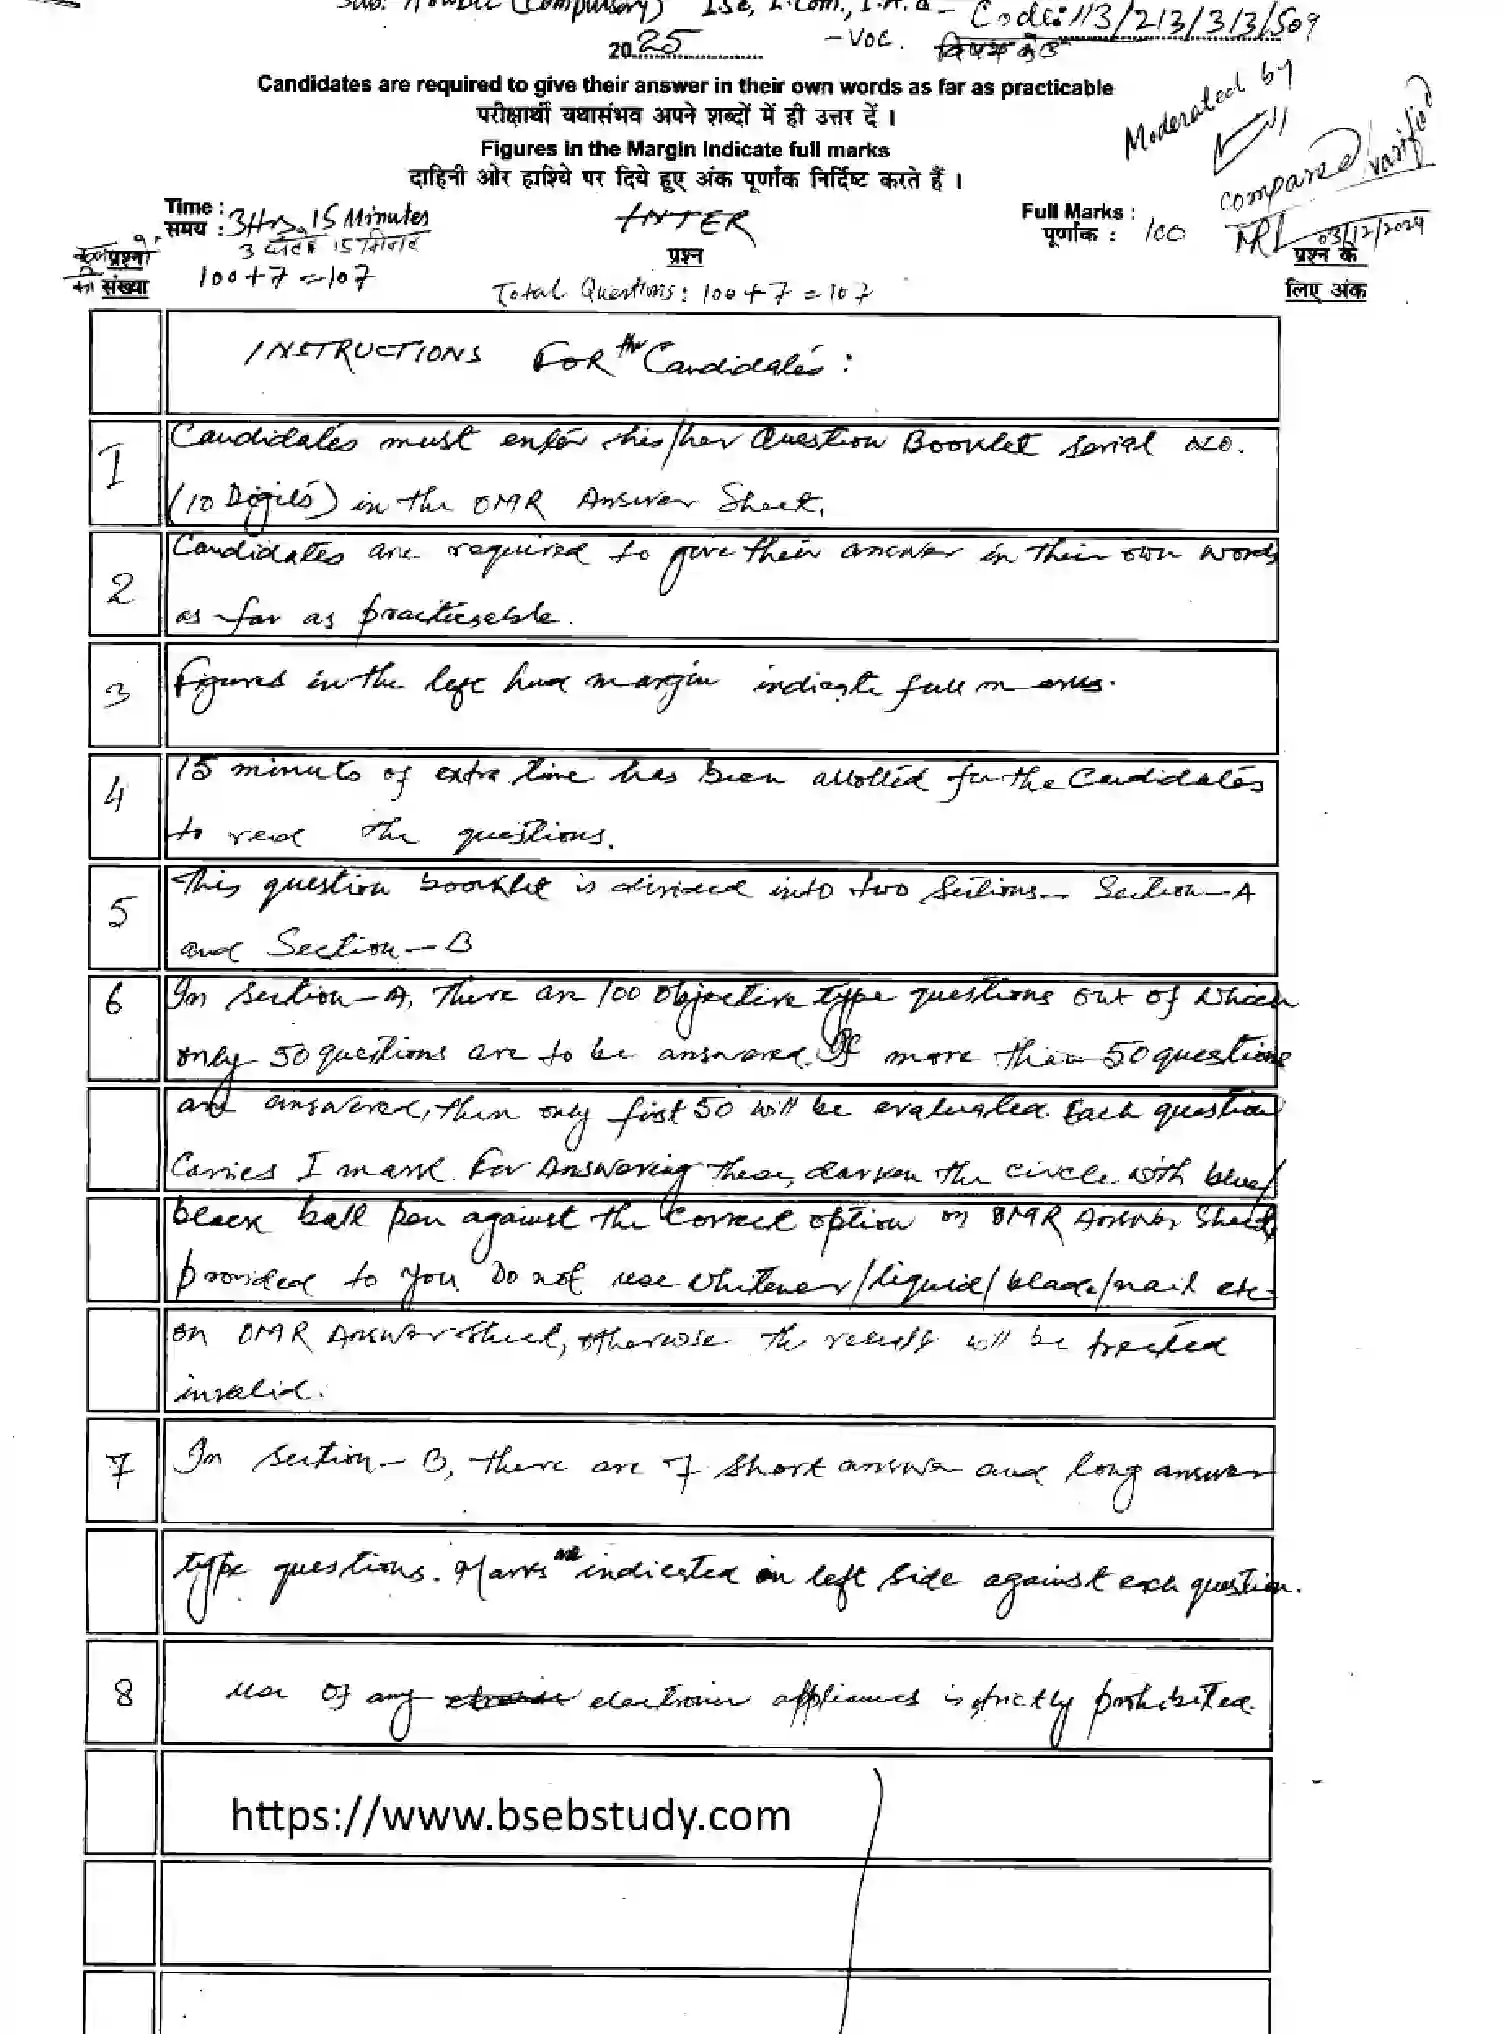 Sub: (Compulsory) ISc, I.Com., I.A & - Code: 113/213/313/509
2025 -VOC.
Candidates are required to give their answer in their own words as far as practicable
परीक्षार्थी यथासंभव अपने शब्दों में ही उत्तर दें ।
Figures in the Margin Indicate full marks
दाहिनी ओर हाशिये पर दिये हुए अंक पूर्णांक निर्दिष्ट करते हैं ।
Moderated by
Compared/varified
03/12/2024
Time : 3Hrs. 15 Minutes
समय : 3 घंटे 15 मिनट
INTER
Full Marks :
पूर्णांक : 100
कुल प्रश्नों की संख्या
100+7=107
प्रश्न
Total Questions: 100+7=107
प्रश्न के
लिए अंक
INSTRUCTIONS FOR the Candidates:
1 Candidates must enter his/her Question Booklet serial no.
(10 Digits) in the OMR Answer Sheet.
2 Candidates are required to give their answer in their own words
as far as practiceable.
3 Figures in the left hand margin indicate full marks.
4 15 minuts of extra time has been allotted for the Candidates
to read the questions.
5 This question booklet is divided into two Sections- Section-A
and Section-B
6 In section-A, There are 100 objective type questions out of which
only 50 questions are to be answered. If more than 50 questions
are answered, then only first 50 will be evaluated. Each question
Carries 1 mark. For Answering these, darken the circle with blue/
black ball pen against the correct option on OMR Answer Sheet
provided to you. Do not use whitener/liquid/blade/nail etc.
on OMR Answer Sheet, otherwise the result will be treated
invalid.
7 In section-B, there are 7 short answer and long answer
type questions. Marks are indicated in left side against each question.
8 use of any electronic appliances is strictly prohibited.
https://www.bsebstudy.com